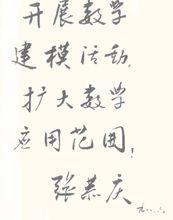 开展数学
建模活动,
扩大数学
应用范围!
张恭庆